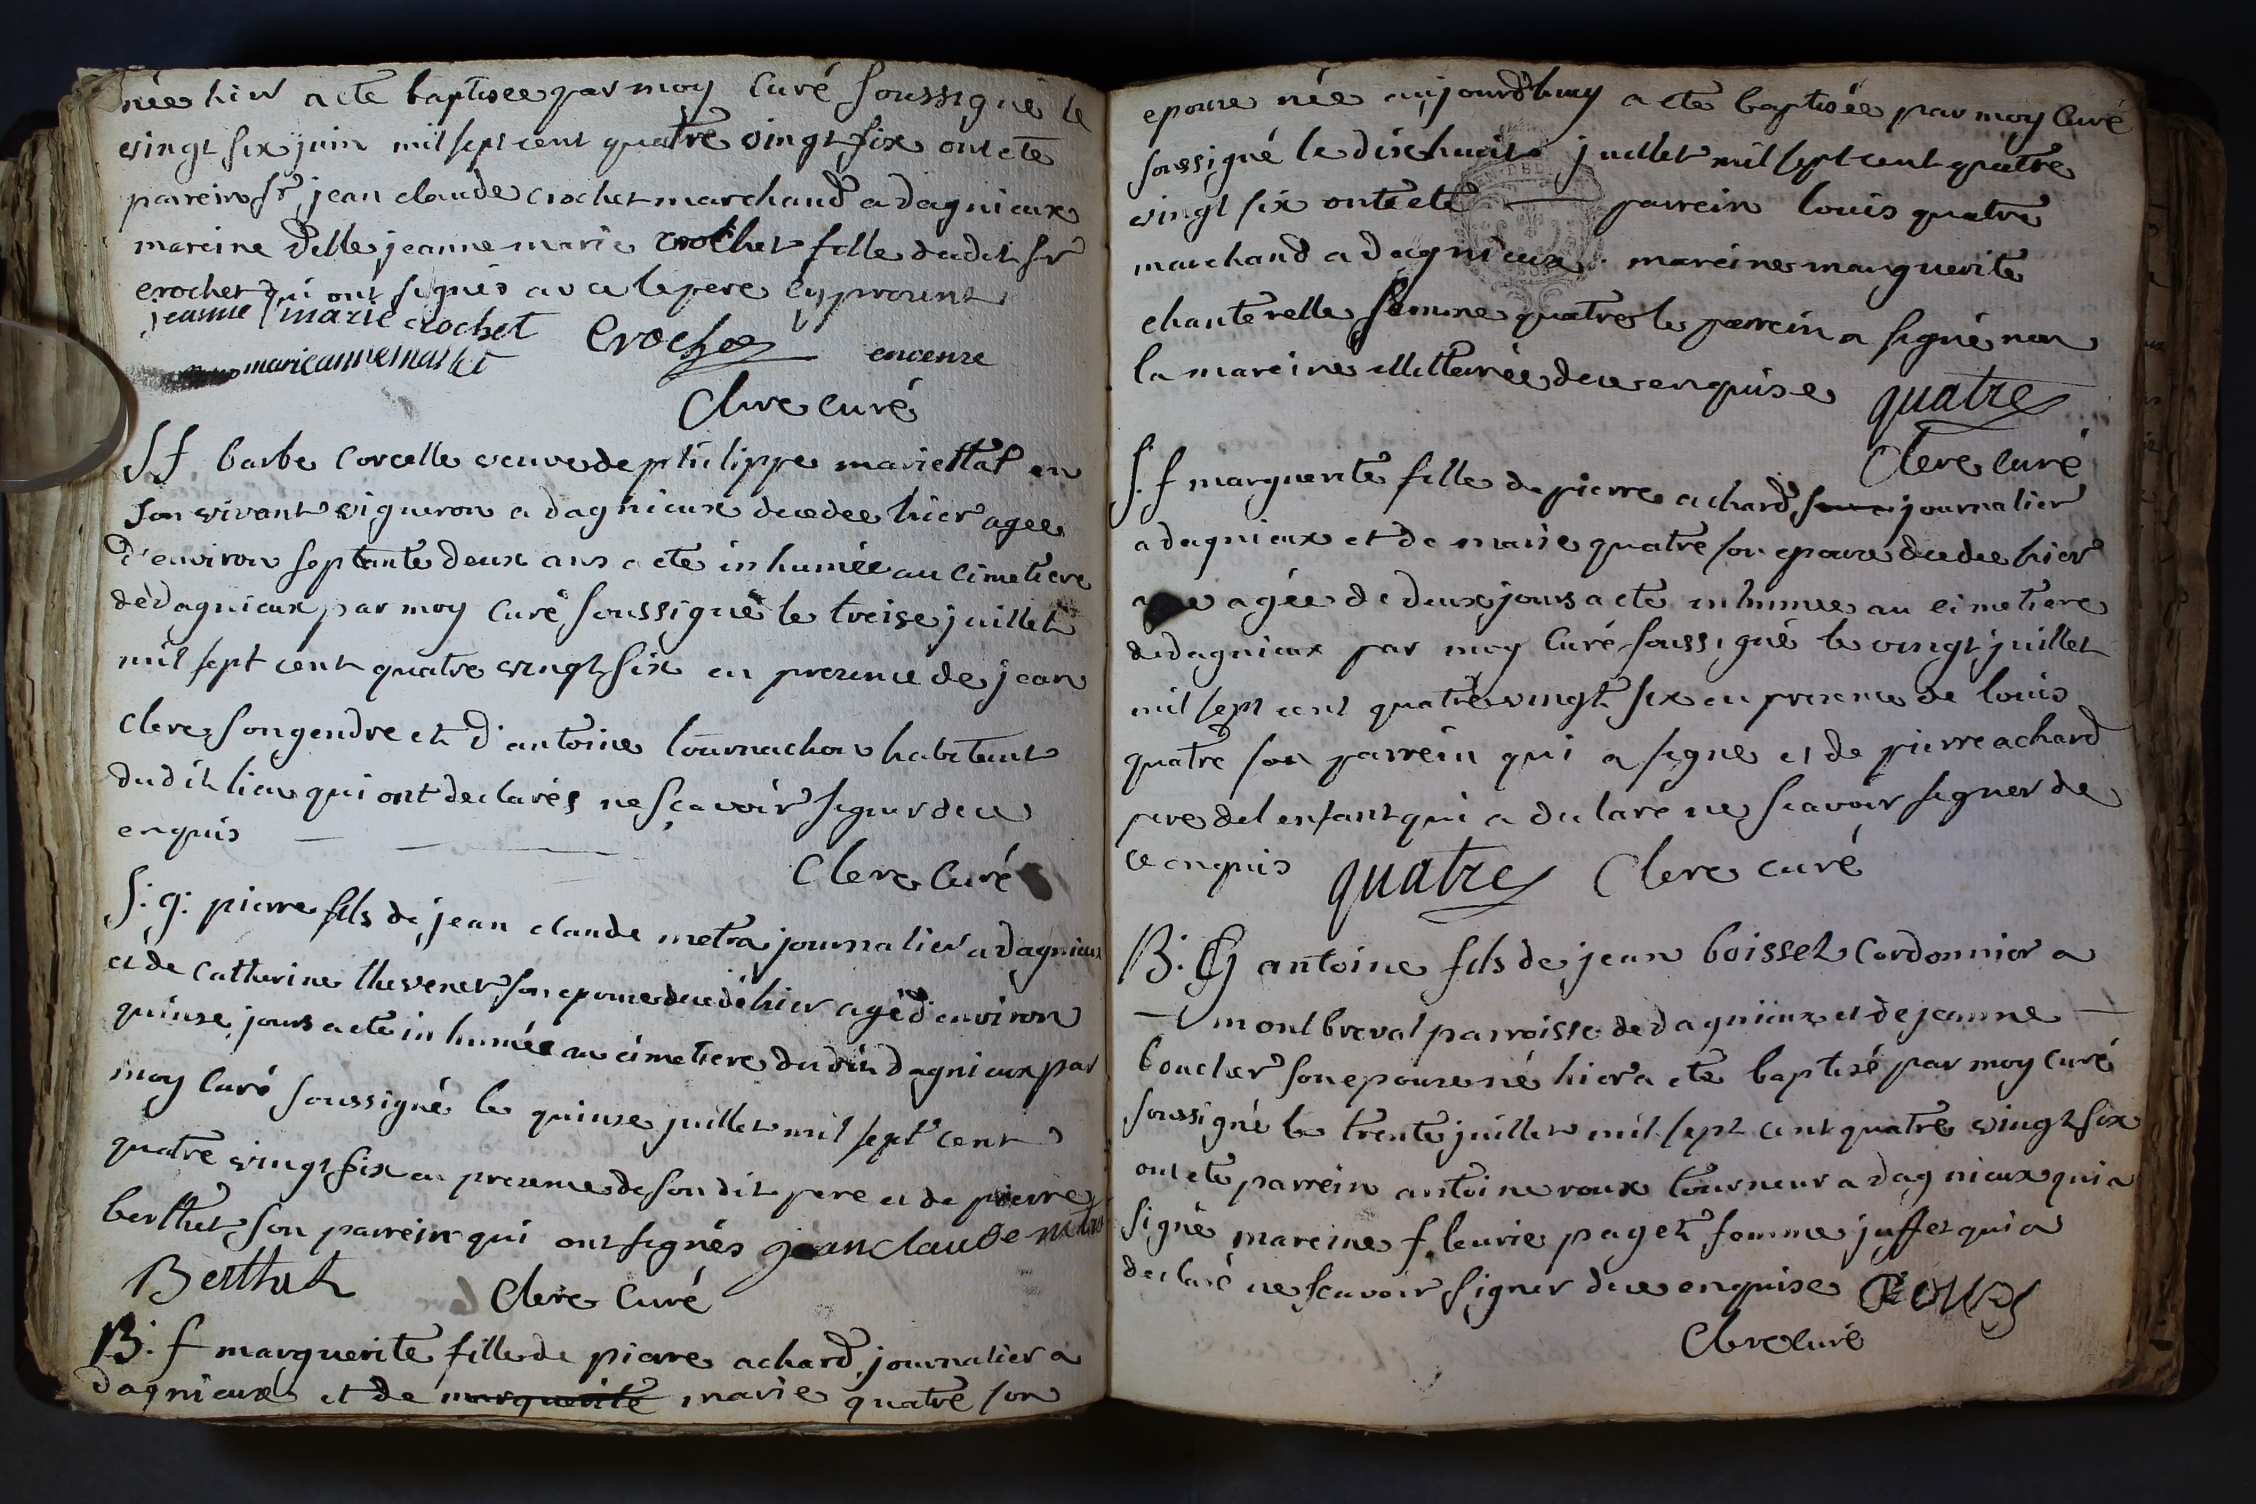 née hier a eté baptisee par moy Curé soussigné le
vingt six juin mil sept cent quatre vingt six ont eté
parrein sr jean claude crochet marchand a dagnieux
mareine delle jeanne marie crochet fille dudit sr
crochet qui ont signés avec le pere cy present
jeanne marie crochet Crochet
marieanne
Clerc curé
S f barbe Corcelle veuve de philippe mariettat en
son vivant vigneron a dagnieux decedee hier agee
d'environ septante deux ans a eté inhumée au cimetiere
de dagnieux par moy Curé soussigné le treise juillet
mil sept cent quatre vingt six en presence de jean
Clerc son gendre et d'antoine tournachon habitant
dudit lieu qui ont declarés ne sçavoir signer de ce
enquis
Clerc Curé
S: g: pierre fils de jean claude metra journalier a dagnieux
et de Catherine thevenet son epouse decedé hier agé d'environ
quinse jours a eté inhumée au cimetiere du dit dagnieux par
moy Curé soussigné le quinse juillet mil sept cent
quatre vingt six en presence de son dit pere et de pierre
berthet son parrein qui ont signés jean claude metra
Berthet
Clerc Curé
B: f marguerite fille de pierre achard journalier a
dagnieux et de marguerite marie quatre son
epouse née aujourd'huy a eté baptisée par moy Curé
soussigné le dix huit juillet mil sept cent quatre
vingt six ont eté parrein louis quatre
marchand a dagnieux mareine marguerite
chanterelle femme quatre le parrein a signé non
la mareine illitterée de ce enquise quatre
Clerc Curé
S: f marguerite fille de pierre achard journalier
a dagnieux et de marie quatre son epouse decedee hier
agée de deux jours a eté inhumee au cimetiere
de dagnieux par moy Curé soussigné le vingt juillet
mil sept cent quatre vingt six en presence de louis
quatre son parrein qui a signe et de pierre achard
pere del enfant qui a declare ne scavoir signer de
ce enquis quatre Clerc curé
B: G antoine fils de jean boisset Cordonnier a
montbreval parroisse de dagnieux et de jeanne
boucher son epouse né hier a eté baptisé par moy Curé
soussigné le trente juillet mil sept cent quatre vingt six
ont eté parrein antoine roux tourneur a dagnieux qui a
signé mareine fleurie paget femme juffet qui a
declaré ne scavoir signer de ce enquise Roux
Clerc curé